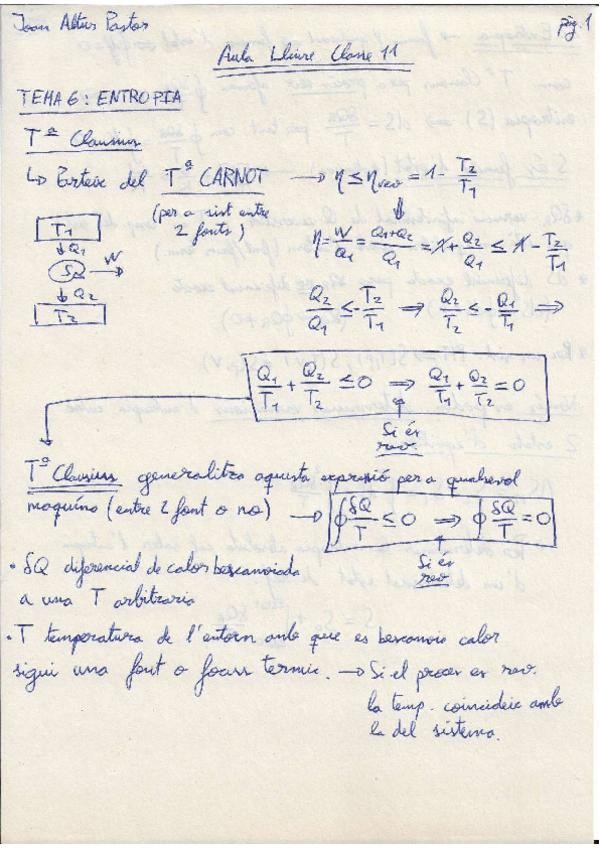 Joan Altus Pastor
pàg. 1
Aula Lliure Classe 11
TEMA 6: ENTROPIA
Tª Clausius
↳ Parteix del Tª CARNOT → η ≤ η_rev = 1 - T₂/T₁
(per a sist entre
2 fonts)
η = W/Q₁ = (Q₁+Q₂)/Q₁ = 1 + Q₂/Q₁ ≤ 1 - T₂/T₁
T₁
↓Q₁
W
↓Q₂
T₂
Q₂/Q₁ ≤ -T₂/T₁ ⇒ Q₂/T₂ ≤ -Q₁/T₁ ⇒
Q₁/T₁ + Q₂/T₂ ≤ 0 ⇒ Q₁/T₁ + Q₂/T₂ = 0
Si és
rev.
Tª Clausius generalitza aquesta expressió per a qualsevol
maquina (entre 2 font o no) → ∮ δQ/T ≤ 0 ⇒ ∮ δQ/T = 0
Si és
rev.
• δQ diferencial de calor bescanviada
a una T arbitraria
• T temperatura de l'entorn amb que es bescanvia calor
sigui una font o focus termic. → Si el proces es rev.
la temp. coincideix amb
la del sistema.